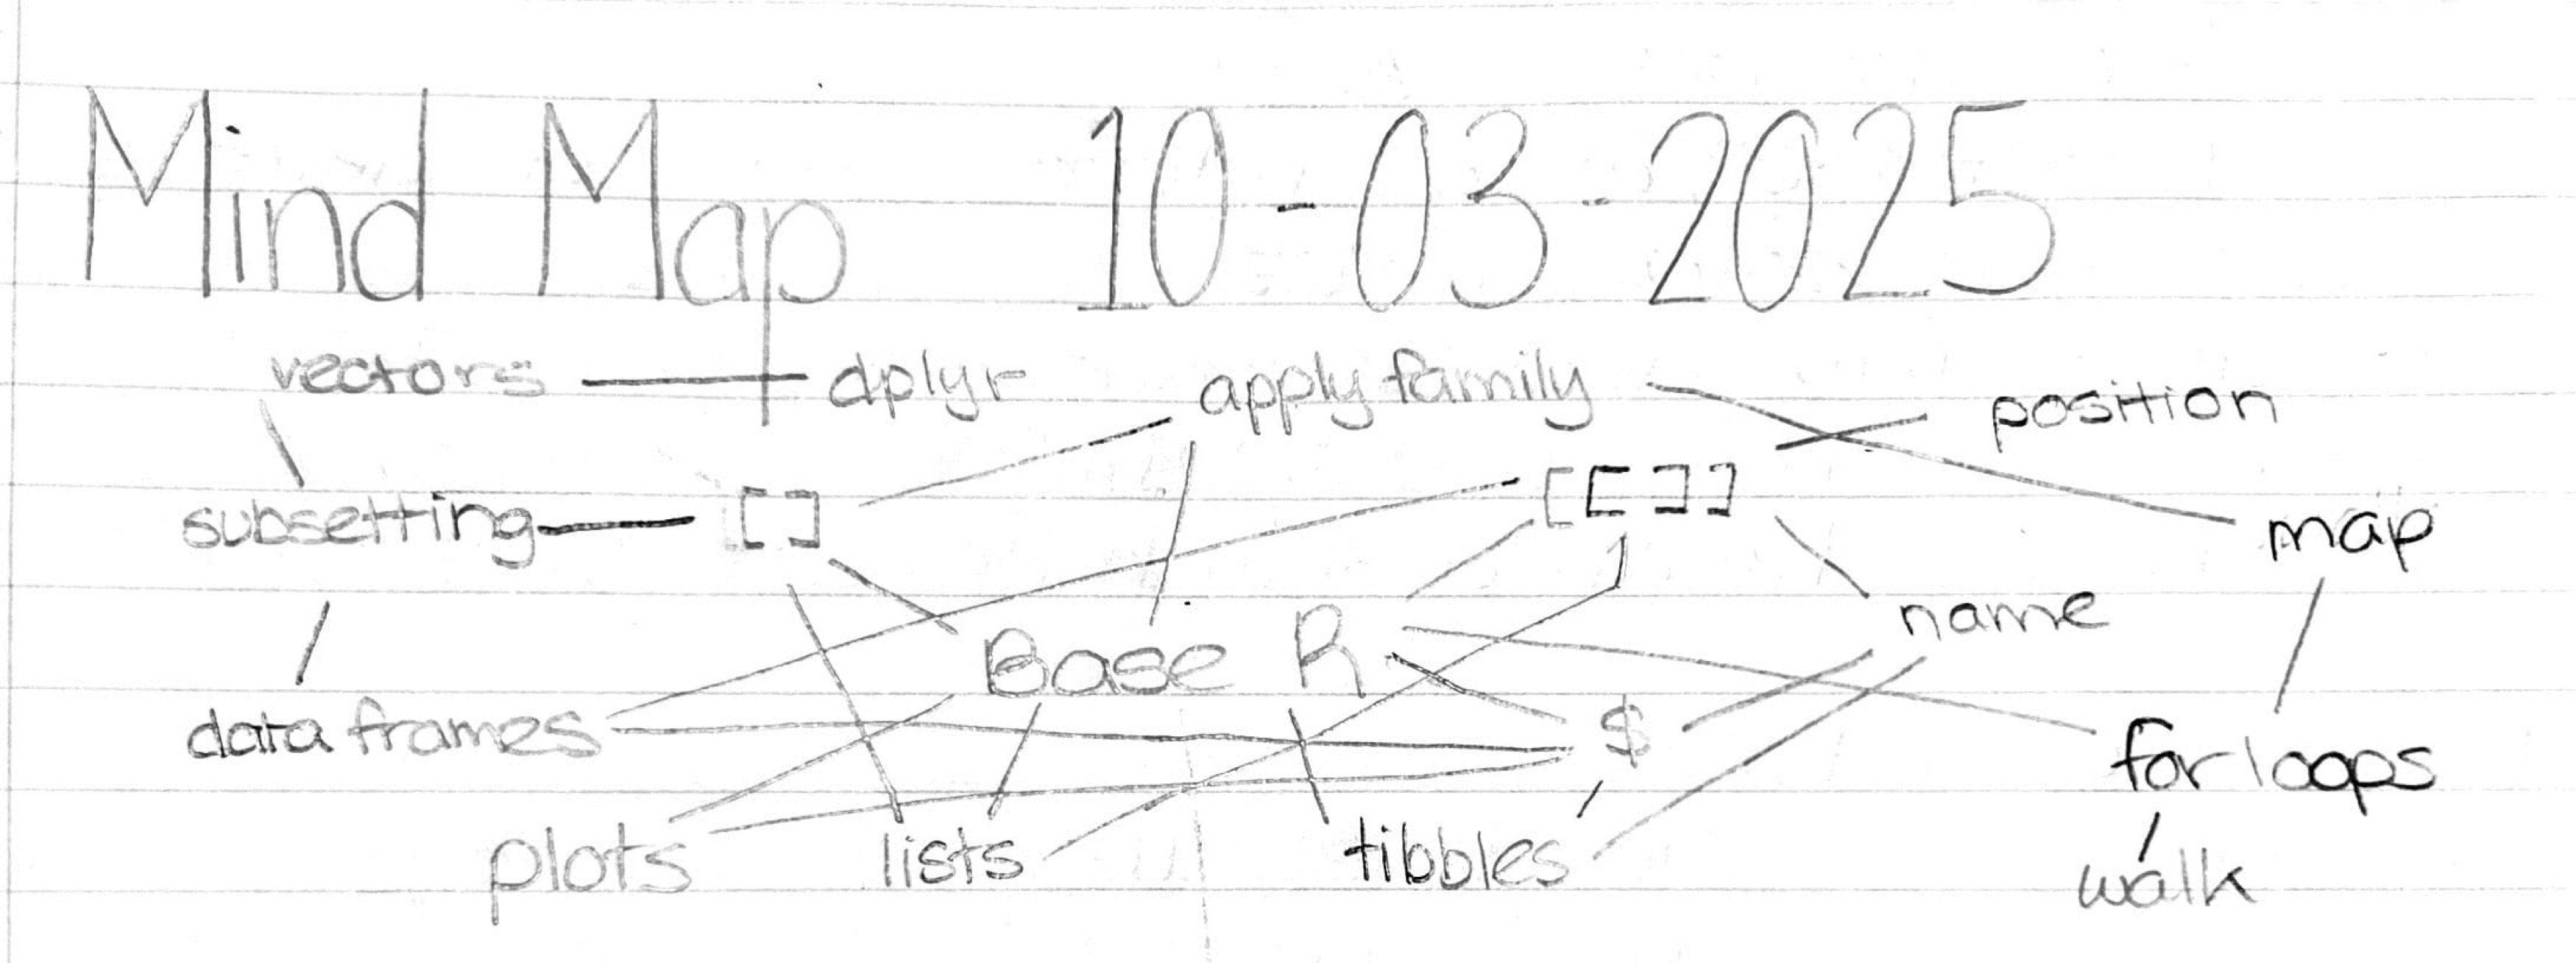 Mind Map 10-03-2025
vectors dplyr apply family position
subsetting [] [[]] map
Base R name
data frames $ for loops
plots lists tibbles walk